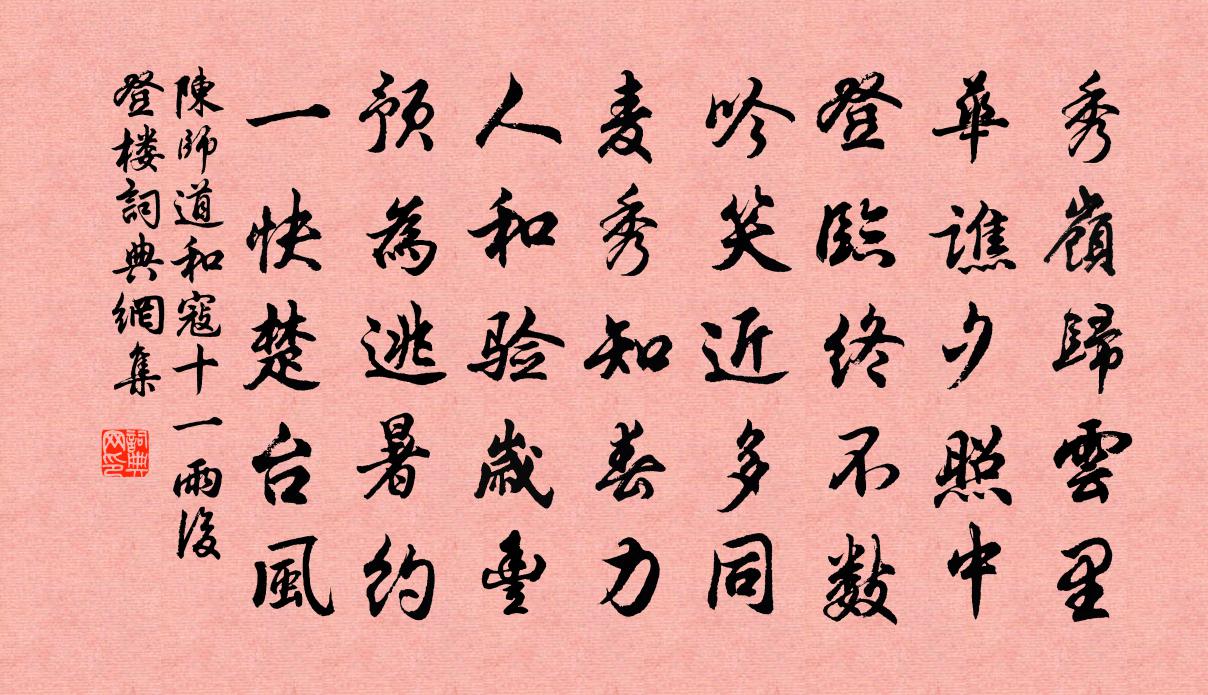 秀嶺歸雲里
華譙夕照中
登臨終不数
吟笑近多同
麦秀知春力
人和验歲豊
預為逃暑約
一快楚台風
陳師道和寇十一雨後
登楼詞典網集
詞典網印